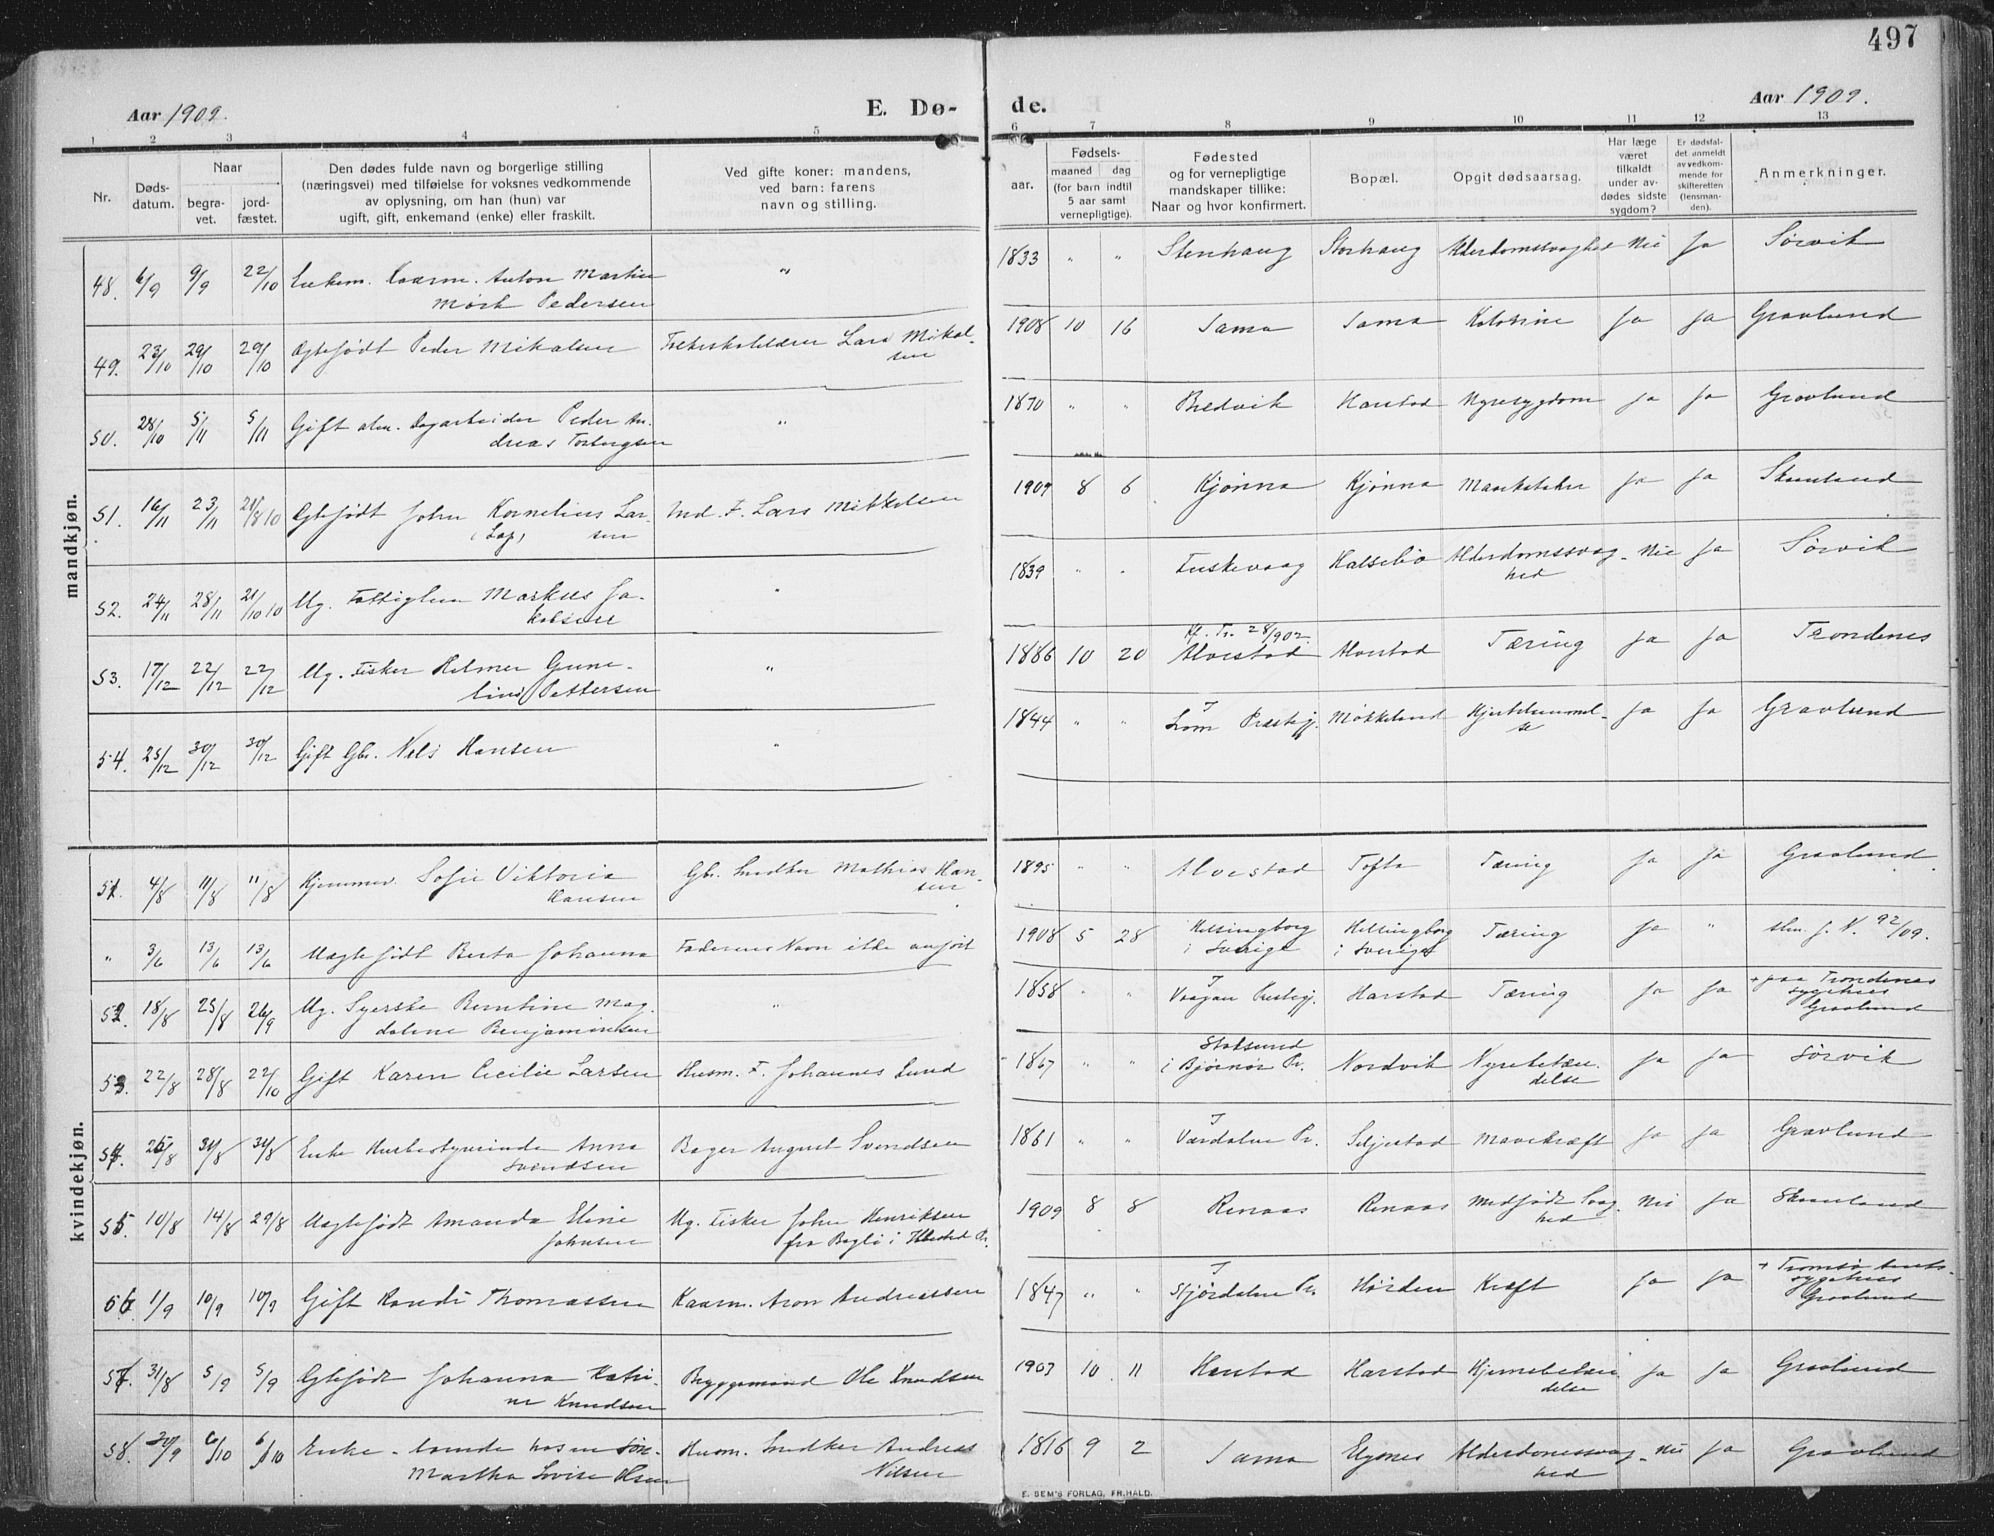 497
Aar 1909.
E. Dø-
de.
Aar 1909.
1 2 3 4 5 6 7 8 9 10 11 12 13
Nr.
Døds-
datum.
Naar
begra-
vet.
jord-
fæstet.
Den dødes fulde navn og borgerlige stilling
(næringsvei) med tilføielse for voksnes vedkommende
av oplysning, om han (hun) var
ugift, gift, enkemand (enke) eller fraskilt.
Ved gifte koner: mandens,
ved barn: farens
navn og stilling.
Fødsels-
aar.
maaned dag
(for barn indtil
5 aar samt
vernepligtige).
Fødested
og for vernepligtige
mandskaper tillike:
Naar og hvor konfirmert.
Bopæl.
Opgit dødsaarsag.
Har læge
været
tilkaldt
under av-
dødes sidste
sygdom?
Er dødsfal-
det anmeldt
av vedkom-
mende for
skifteretten
(lensman-
den).
Anmerkninger.
mandkjøn.
48. 6/9 9/9 22/10 Enkem. Kaarm. Anton Martin " 1833 " " Stenhaug Storhaug Alderdomssvaghed Nei Ja Sørvik
Mørk Pedersen
49. 23/10 29/10 29/10 Ægtefødt Peder Mikalsen Lars Mikal- 1908 10 16 Sama Sama Ja Ja Gravlund
sen
50. 28/10 5/11 5/11 Gift alm. Dagarbeider Peder An- " 1870 " " Bredvik Harstad Nyresygdom Ja Ja Gravlund
dreas Torbergsen
51. 16/11 23/11 21/8 10 Ægtefødt John Kornelius Lar- Ind. F. Lars Mikkelsen 1909 8 6 Kjønna Kjønna Ja Ja Skaanland
(Lap) sen
52. 24/11 28/11 21/10 10 Ug. Fattiglem Markus Ja- " 1839 " " Kalsebø Alderdomssvag- Nei Ja Sørvik
kobsen hed
53. 17/12 22/12 22/12 Ug. Fisker Hilmer Gune- " 1886 10 20 Alvestad Alvestad Tæring Ja Ja Trondenes
Kf. Tr. 28/902.
Pettersen
54. 25/12 30/12 30/12 Gift Gbr. Nels Hansen " 1844 " " Lom Præstegj. Møkkelund Ja Ja Gravlund
I
kvindekjøn.
51. 4/8 11/8 11/8 Hjemmev. Sofie Viktoria Gbr. Snedker Mathias Han- 1895 " " Alvestad Tofta Tæring Ja Ja Gravlund.
Hansen sen
" 3/6 13/6 13/6 Uægtefødt Berta Johanna Faderens Navn ikke anført 1908 5 28 Helsingborg Helsingborg Tæring Ja " f. N. 92/09.
i Sverige i Sverige
52. 18/8 25/8 26/9 Ug. Syerske Berntine Mag- " 1858 " " Vaagan Præstegj. Harstad Tæring Ja Ja + paa Trondenes
I sygehus
dalene Benjaminsen Gravlund
53. 22/8 28/8 22/10 Gift Karen Cecilie Larsen Husm. F. Johannes Lund 1867 " " Stoksund Nordvik Nyrebetæn- Ja Ja Sørvik
i Bjørnør Pr. delse
54. 26/8 31/8 31/8 Enke Husbestyrerinde Anna Bager August Svendsen 1861 " " Værdalen Pr. Seljestad Mavekræft Ja Ja Gravlund
I
Svendsen
55. 10/8 14/8 29/8 Uægtefødt Amanda Eline Ug. Fisker John Henriksen 1909 8 8 Renaas Renaas Medfødt Svag- Nei Ja Skaanland
Johnsen fra i Ibestad Pr. hed
56. 1/9 10/9 10/9 Gift Randi Thomassen Kaarm. Aron Andreassen 1847 " " Stjørdalen Pr. Kræft Ja Ja + Tromsø amts-
I sygehus
Gravlund
57. 31/8 5/9 5/9 Ægtefødt Johanna Katri- Byggemand Ole Knudsen 1907 10 11 Harstad Harstad Hjernebetæn- Ja Ja Gravlund
ne Knudsen delse
58. 30/9 6/10 6/10 Enke - hos en Søn- Husm. Snedker Andreas 1816 9 2 Sama Elgsnes Alderdomssvag- Nei Ja Gravlund
Martha Lovise Nilsen hed
E. SEM'S FORLAG, FR.HALD.